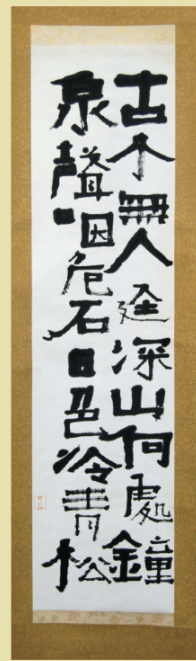 古木無人逕深山何處鐘
泉聲咽危石日色冷青松